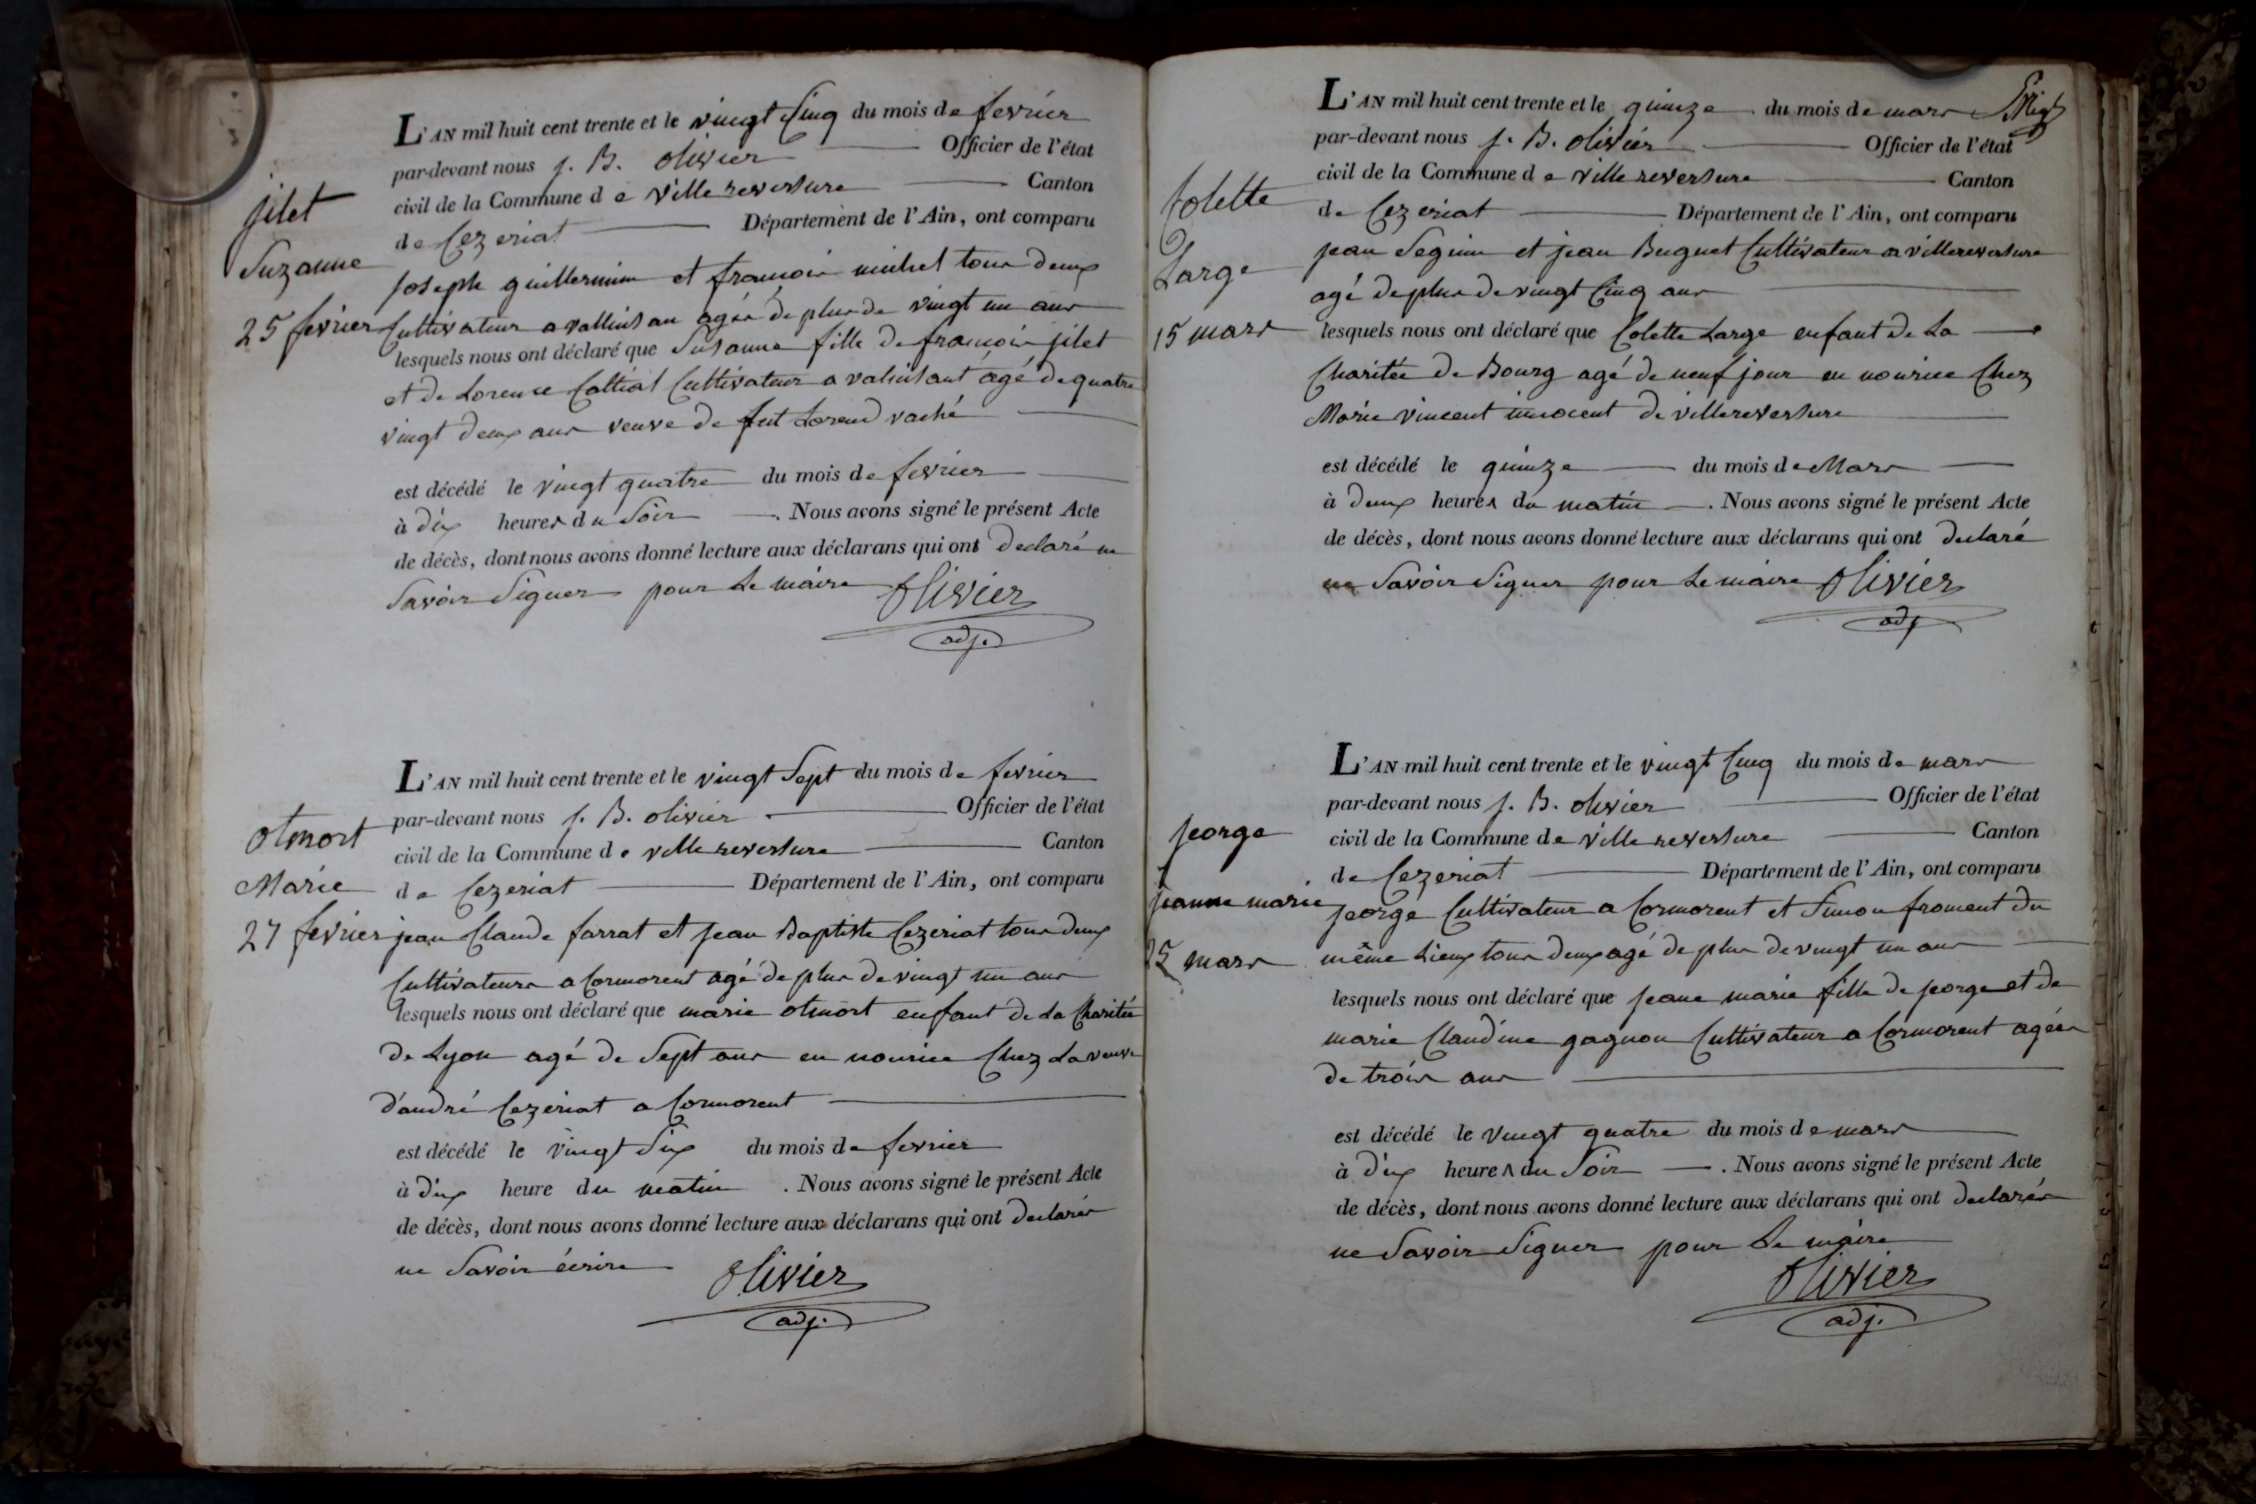 jilet
Suzanne
25 fevrier
L'AN mil huit cent trente et le vingt Cinq du mois de fevrier
par-devant nous j. B. olivier Officier de l'état
civil de la Commune de villereversure Canton
de Cezeriat Département de l'Ain, ont comparu
joseph guillermin et francois michel tous deux
Cultivateur a vallinsan agés de plus de vingt un ans
lesquels nous ont déclaré que Susanne fille de francois jilet
et de Lorence Cultivateur a agé de quatre
vingt deux ans veuve de feut Lorend vaché
est décédé le vingt quatre du mois de fevrier
à dix heures du Soir . Nous avons signé le présent Acte
de décès, dont nous avons donné lecture aux déclarans qui ont declaré ne
Savoir Signer pour Le maire Olivier
adj.
otmort
Marie
27 fevrier
L'AN mil huit cent trente et le vingt Sept du mois de fevrier
par-devant nous j. B. olivier Officier de l'état
civil de la Commune de villereversure Canton
de Cezeriat Département de l'Ain, ont comparu
jean Claude farrat et jean Baptiste Cezeriat tous deux
Cultivateurs a Cormorent agé de plus de vingt un ans
lesquels nous ont déclaré que marie otmort enfant de La Charitée
de Lyon agé de Sept ans en nourice Chez La veuve
d'andré Cezeriat a Cormorent
est décédé le vingt Six du mois de fevrier
à dix heure du matin . Nous avons signé le présent Acte
de décès, dont nous avons donné lecture aux déclarans qui ont declarés
ne Savoir écrire Olivier
adj.
Colette
Large
15 mars
L'AN mil huit cent trente et le quinze du mois de mars
par-devant nous j. B. olivier Officier de l'état
civil de la Commune de villereversure Canton
de Cezeriat Département de l'Ain, ont comparu
jean Seguin et jean Buguet Cultivateur a villereversure
agé de plus de vingt Cinq ans
lesquels nous ont déclaré que Colette Large enfant de La
Charitée de Bourg agé de neuf jour en nourice Chez
Marie vincent innocent de villereversure
est décédé le quinze du mois de Mars
à deux heures du matin . Nous avons signé le présent Acte
de décès, dont nous avons donné lecture aux déclarans qui ont declaré
ne Savoir Signer pour Le maire Olivier
adj
jeorge
jeanne marie
25 mars
L'AN mil huit cent trente et le vingt Cinq du mois de mars
par-devant nous j. B. olivier Officier de l'état
civil de la Commune de villereversure Canton
de Cezeriat Département de l'Ain, ont comparu
jeorge Cultivateur a Cormorent et Simon froment du
même Lieux tous deux agé de plus de vingt un ans
lesquels nous ont déclaré que jeane marie fille de jeorge et de
marie Claudine gagnon Cultivateur a Cormorent agée
de trois ans
est décédé le vingt quatre du mois de mars
à dix heures du Soir . Nous avons signé le présent Acte
de décès, dont nous avons donné lecture aux déclarans qui ont declarés
ne Savoir Signer pour Le maire
Olivier
adj.